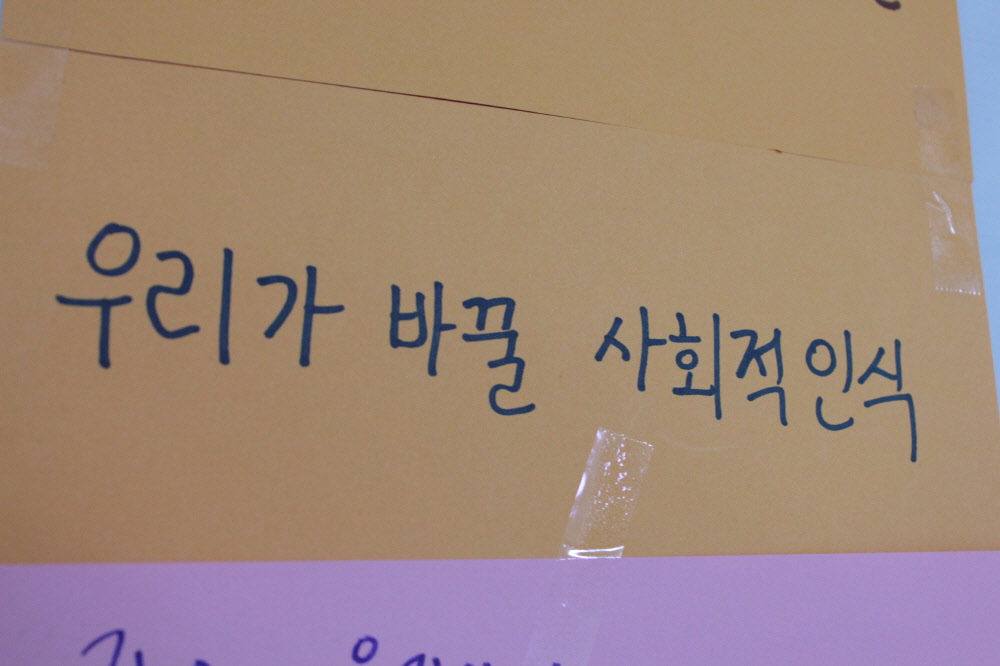 우리가 바꿀 사회적인식